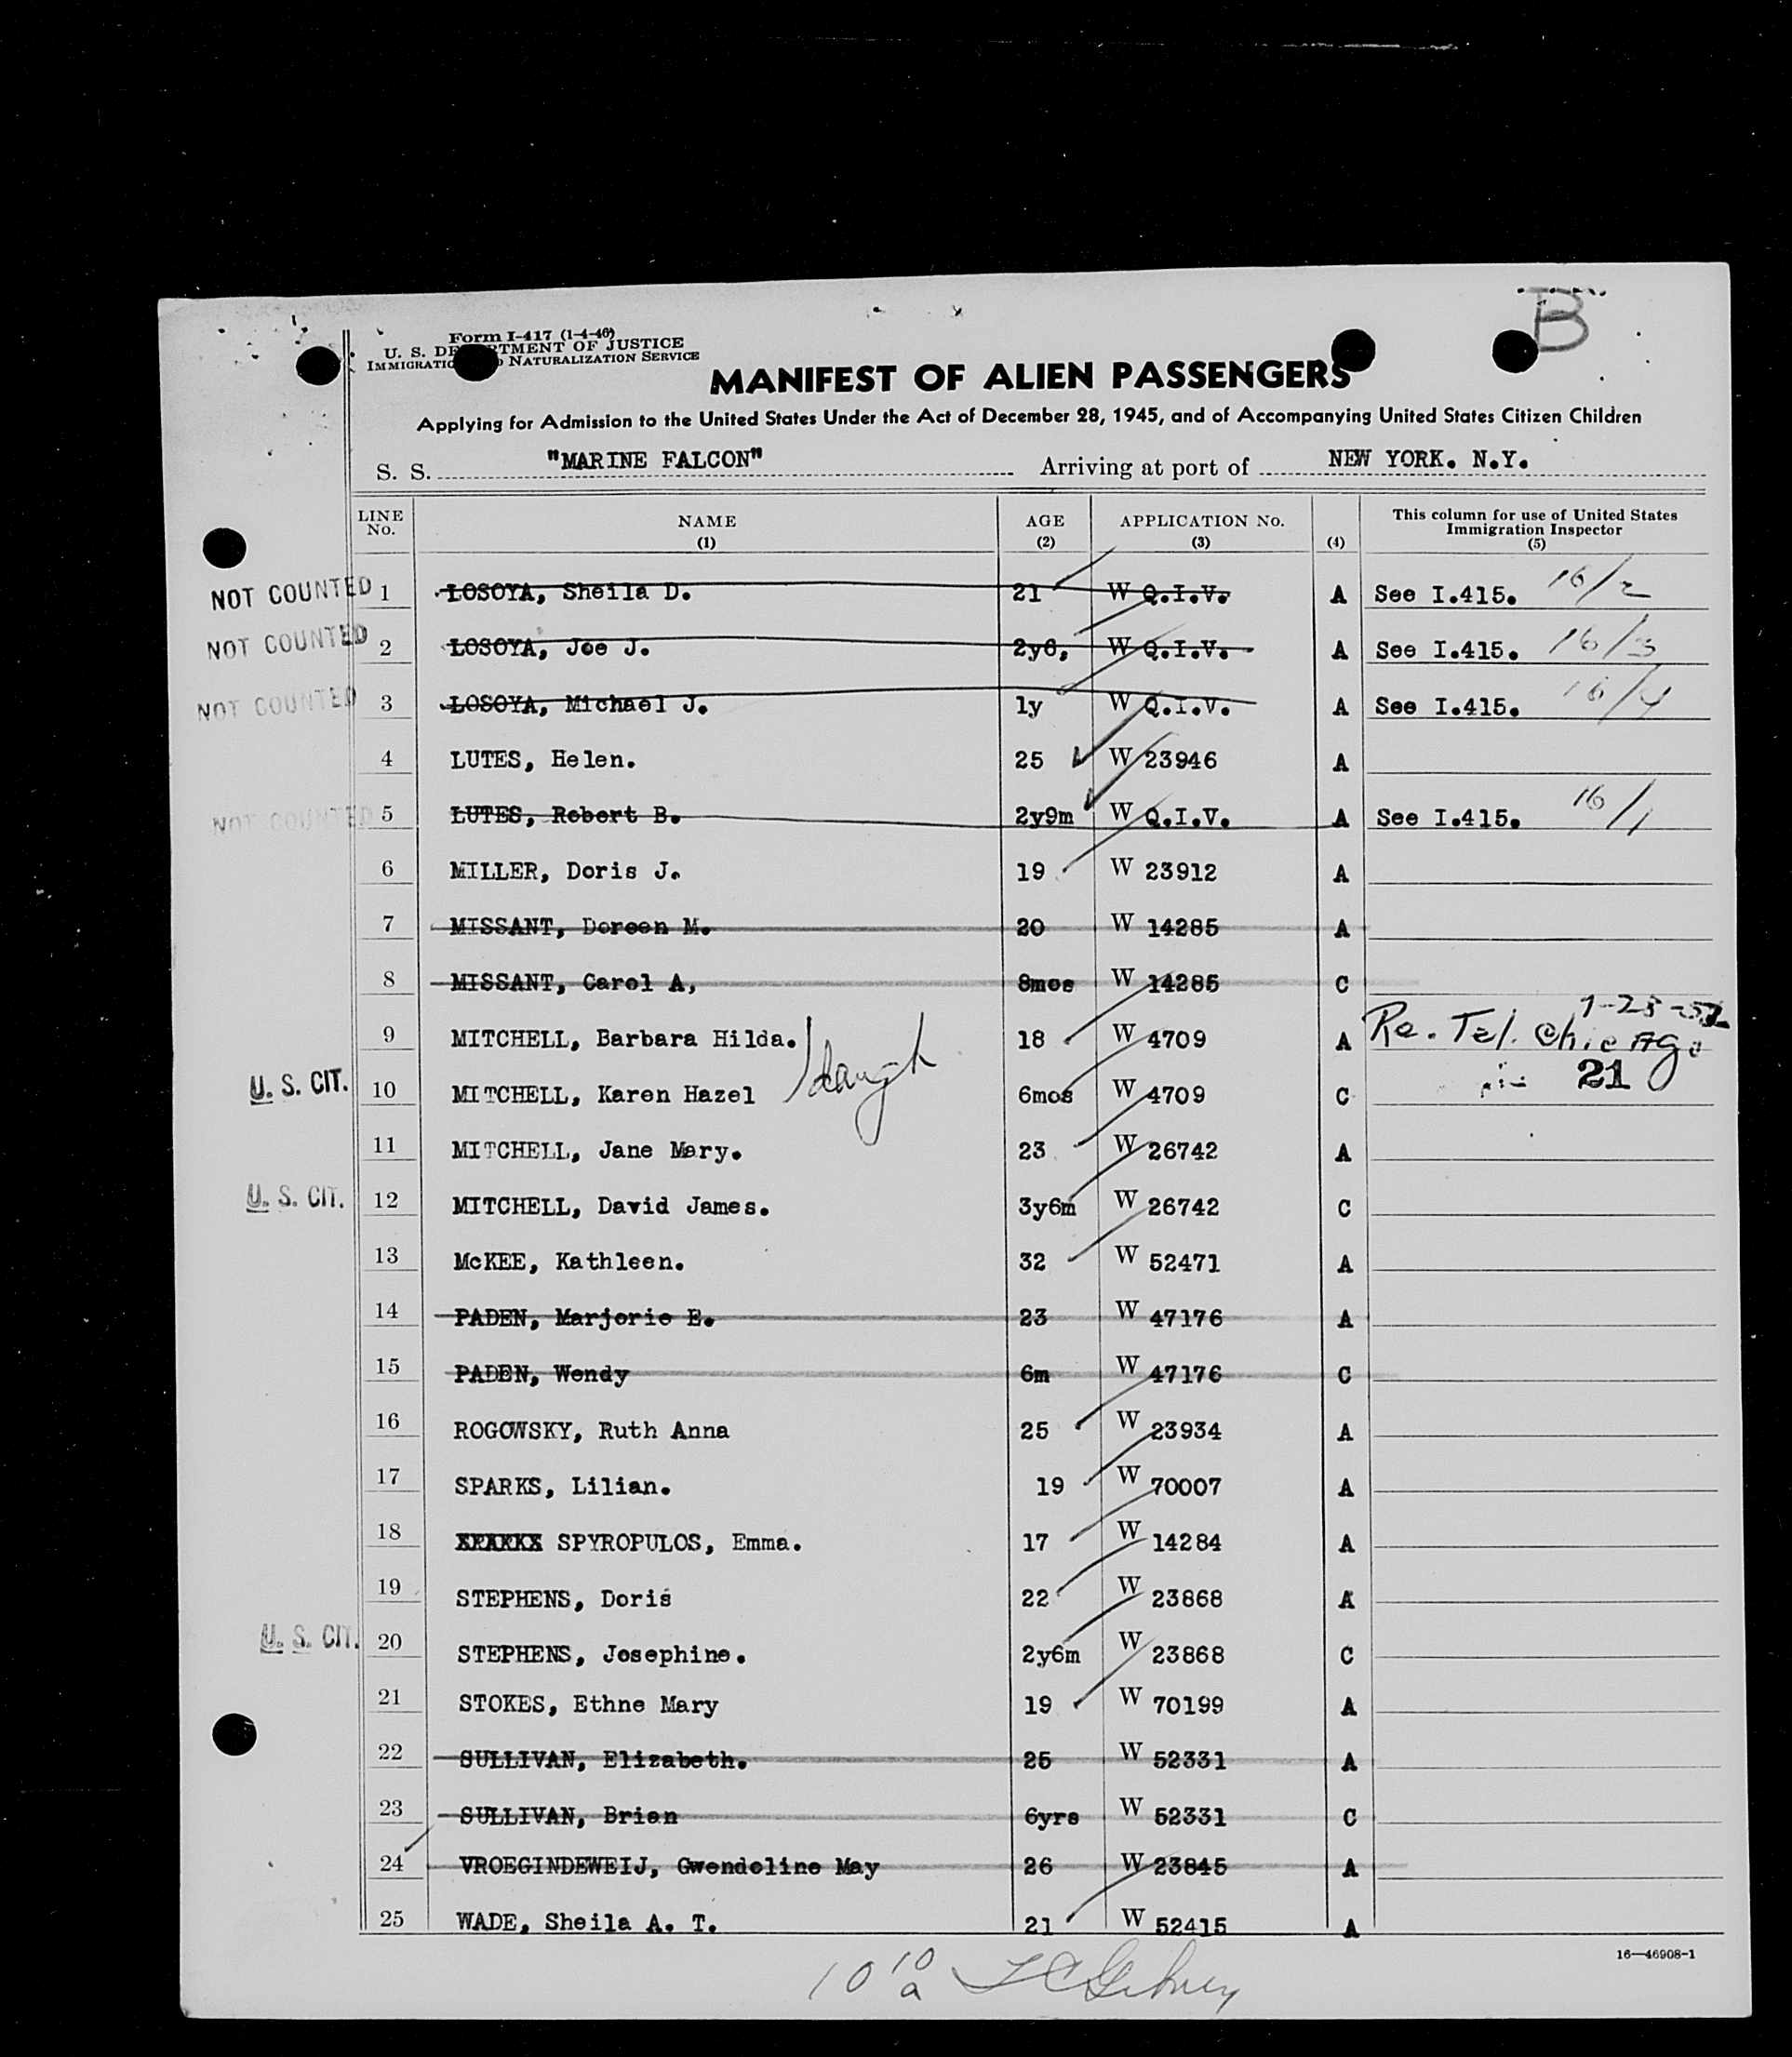 B
Form I-417 (1-4-46)
U. S. DEPARTMENT OF JUSTICE
IMMIGRATION AND NATURALIZATION SERVICE
MANIFEST OF ALIEN PASSENGERS
Applying for Admission to the United States Under the Act of December 28, 1945, and of Accompanying United States Citizen Children
S. S. "MARINE FALCON" Arriving at port of NEW YORK. N.Y.
LINE No. NAME (1) AGE (2) APPLICATION No. (3) (4) This column for use of United States Immigration Inspector (5)
NOT COUNTED 1 LOSOYA, Sheila D. 21 W Q.I.V. A See I.415. 16/2
NOT COUNTED 2 LOSOYA, Joe J. 2y6, W Q.I.V. A See I.415. 16/3
NOT COUNTED 3 LOSOYA, Michael J. 1y W Q.I.V. A See I.415. 16/4
4 LUTES, Helen. 25 W 23946 A
NOT COUNTED 5 LUTES, Robert B. 2y9m W Q.I.V. A See I.415. 16/1
6 MILLER, Doris J. 19 W 23912 A
7 MISSANT, Doreen M. 20 W 14285 A
8 MISSANT, Carol A, 8mos W 14285 C
9 MITCHELL, Barbara Hilda. 18 W 4709 A Re. Tel. Chicago 1-25-52
U. S. CIT. 10 MITCHELL, Karen Hazel daugh 6mos W 4709 C 21
11 MITCHELL, Jane Mary. 23 W 26742 A
U. S. CIT. 12 MITCHELL, David James. 3y6m W 26742 C
13 McKEE, Kathleen. 32 W 52471 A
14 PADEN, Marjorie E. 23 W 47176 A
15 PADEN, Wendy 6m W 47176 C
16 ROGOWSKY, Ruth Anna 25 W 23934 A
17 SPARKS, Lilian. 19 W 70007 A
18 SPYROPULOS, Emma. 17 W 14284 A
19 STEPHENS, Doris 22 W 23868 A
U. S. CIT. 20 STEPHENS, Josephine. 2y6m W 23868 C
21 STOKES, Ethne Mary 19 W 70199 A
22 SULLIVAN, Elizabeth. 25 W 52331 A
23 SULLIVAN, Brian 6yrs W 52331 C
24 VROEGINDEWEIJ, Gwendoline May 26 W 23845 A
25 WADE, Sheila A. T. 21 W 52415 A
16—46908-1
10 10 a